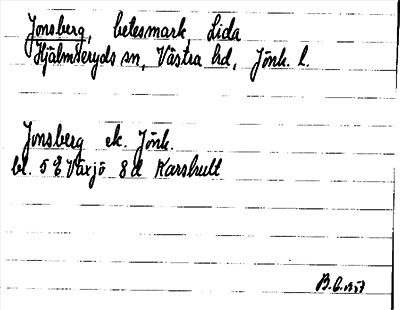 Jonsberg, betesmark, Lida
Hjälmseryds sn, Västra hd, Jönk. l.
Jonsberg ek. Jönk.
bl. 5 E Växjö 8 d Karshult